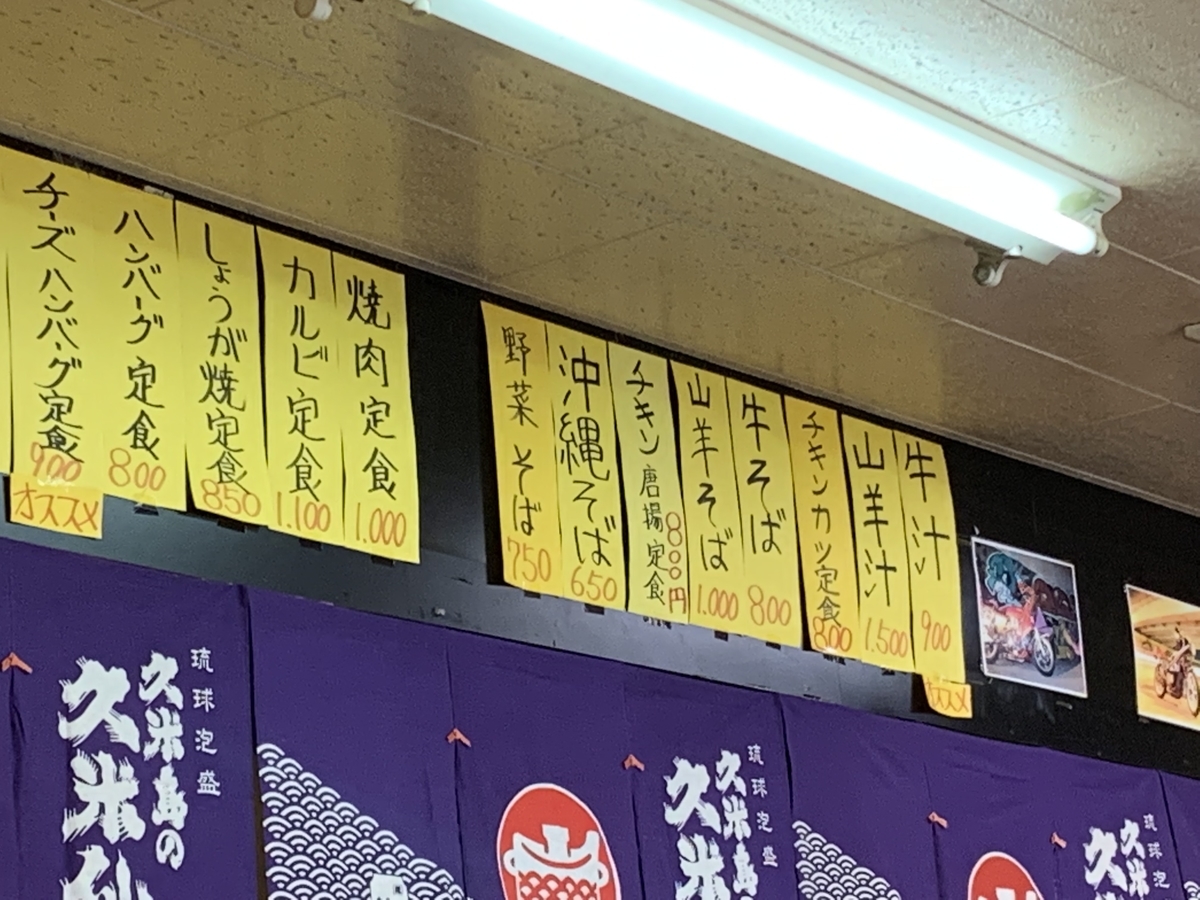 牛汁
900
オススメ
山羊汁
1.500
チキンカツ定食
800
牛そば
800
山羊そば
1.000
チキン唐揚定食
800円
沖縄そば
650
野菜そば
750
焼肉定食
1.000
カルビ定食
1.100
しょうが焼定食
850
ハンバーグ定食
800
チーズハンバーグ定食
900
オススメ
琉球泡盛
久米島の
久米
琉球泡盛
久米島の
久米
琉球泡盛
久米島の
久米仙